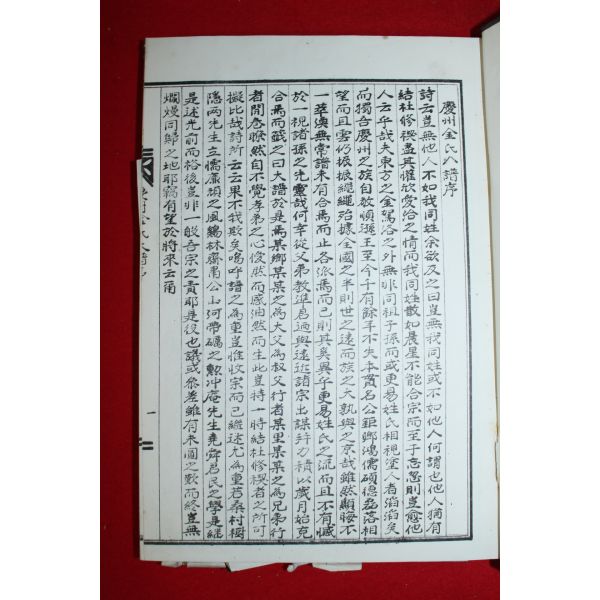 慶州金氏八譜序
詩云豈無他人不如我同姓余欲反之曰豈無我同姓或不如他人何謂也他人猶有
結杜修禊盡其懽欣愛洽之情而我同姓散如晨星不能合宗而至于忘忽則豈愈他
人云乎哉夫東方之金駕洛之外無非同祖子孫而或更易姓氏相視塗人者滔滔矣
而獨吾慶州之族自敬順遜王至今千有餘年不失本貫名公鉅卿鴻儒碩德磊落相
望而且雲仍振振繩繩殆據全國之半則世之遠而族之大孰與之京哉雖然顯晦不
一萃渙無常譜未有合焉而止各派焉而已則其奚異乎更易姓氏之流而且不有慽
於一視諸孫之先靈哉何幸從父弟教準忠過與遠近諸宗出謀幷力積以歲月始克
合焉而籤之曰大譜於是焉某鄕某某之為大父為叔父行者某里某某之為兄弟行
者開卷瞭然自不覺孝弟之心倐然而感油然而生此豈特一時結杜修禊者之所可
擬比哉詩所云云果不我欺矣嗚呼譜之為重豈惟收宗而已繼述尤為重若桑村樹
隱兩先生立懦廉頑之風鷄林齋肅公山河帶礪之勲冲庵先生堯舜君民之學是繼
是述光前而裕後豈非一般吾宗之責耶是役也議或參差雖有未圓之歎而終豈無
爛熳同歸之地耶竊有望於將來云爾
一